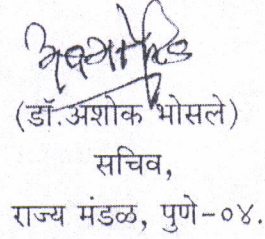 (डॉ.अशोक भोसले)
सचिव,
राज्य मंडळ, पुणे-०४.